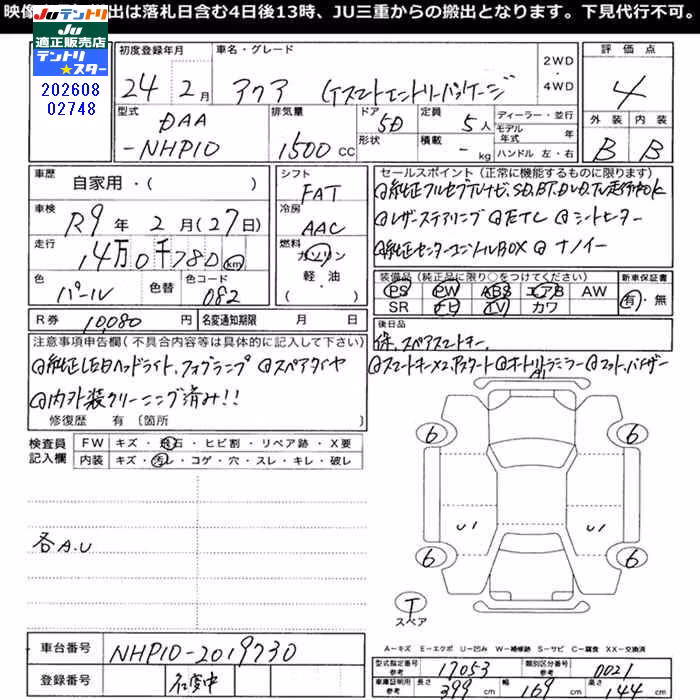 映像 出は落札日含む4日後13時、JU三重からの搬出となります。下見代行不可。
JUテントリ
JU適正販売店
テントリ★スター
202608
02748
初度登録年月 車名・グレード 2WD・4WD 評価点
24年 2月 アクア 4
外装 内装
B B
型式 排気量 ドア 定員 ディーラー・並行
DAA 5D 5人 モデル年式 年
-NHP10 1500cc 形状 積載 - kg ハンドル 左・右
車歴 自家用・( )
シフト FAT
セールスポイント(正常に機能するものに限ります)
◎純正フルセグTVナビ、SD、BT、DVD、TV走行中OK
車検 R9年 2月(27日)
冷房 AAC
◎レザーステアリング ◎ETC ◎シートヒーター
走行 14万0千780km
燃料 ガソリン・軽油・( )
◎純正センターコンソールBOX ◎ナノイー
色 パール 色替 色コード 082
装備品(純正品に限り○をつけてください) 新車保証書
PS PW ABS エアB AW 有・無
SR ナビ TV カワ
R券 10,080円 名変通知期限 月 日
後日品
保、スペアスマートキー、
注意事項申告欄(不具合内容等は具体的に記入して下さい)
◎純正LEDヘッドライト、フォグランプ ◎スペアタイヤ
◎スマートキー×2、Pスタート ◎オートリトラミラー ◎マット、バイザー
◎内外装クリーニング済み!!
修復歴 有 〔箇所 〕
検査員記入欄 FW キズ・飛石・ヒビ割・リペア跡・X要
内装 キズ・汚レ・コゲ・穴・スレ・キレ・破レ
6 6
各A.U
U1 U1
6 6
T
スペア
A−キズ E−エクボ U−凹み W−補修跡 S−サビ C−腐食 XX−交換済
車台番号 NHP10-2019730
型式指定番号 参考 17053 類別区分番号 参考 0021
登録番号
車庫証明用 参考 長さ 399cm 幅 169cm 高さ 144cm